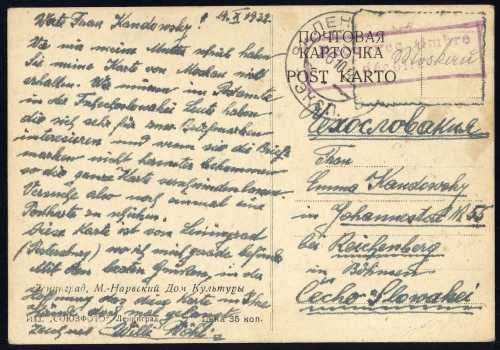 14.X 1932
Werte Frau Kandowsky!
Wie mir meine Mutter schrieb haben
Sie meine Karte von Moskau nicht
erhalten. Wie
in der Leute haben
die sich sehr für Briefmarken
interessieren und wenn sie die Brief-
marken nicht bekommen
so die ganze Karte verschwinden lassen.
Versuche also noch einmal eine
Postkarte zu schicken.
Diese Karte ist von Leningrad
(Petersburg) wo ich mich gerade befinde
Mit den besten Grüßen, in der
Ленинград, М.-Нарвский Дом Культуры
Hoffnung das diese Karte in Ihre
Hände doch mal gelangt
ИЗД. "СОЮЗФОТО" Ленинград Цена 35 коп.
zeichnet Willi
ПОЧТОВАЯ
КАРТОЧКА
POST KARTO
Чехословакия
Frau
Emma Kandowsky
in Johannestal N. 55
bei Reichenberg
in Böhmen
Čecho-Slowakei